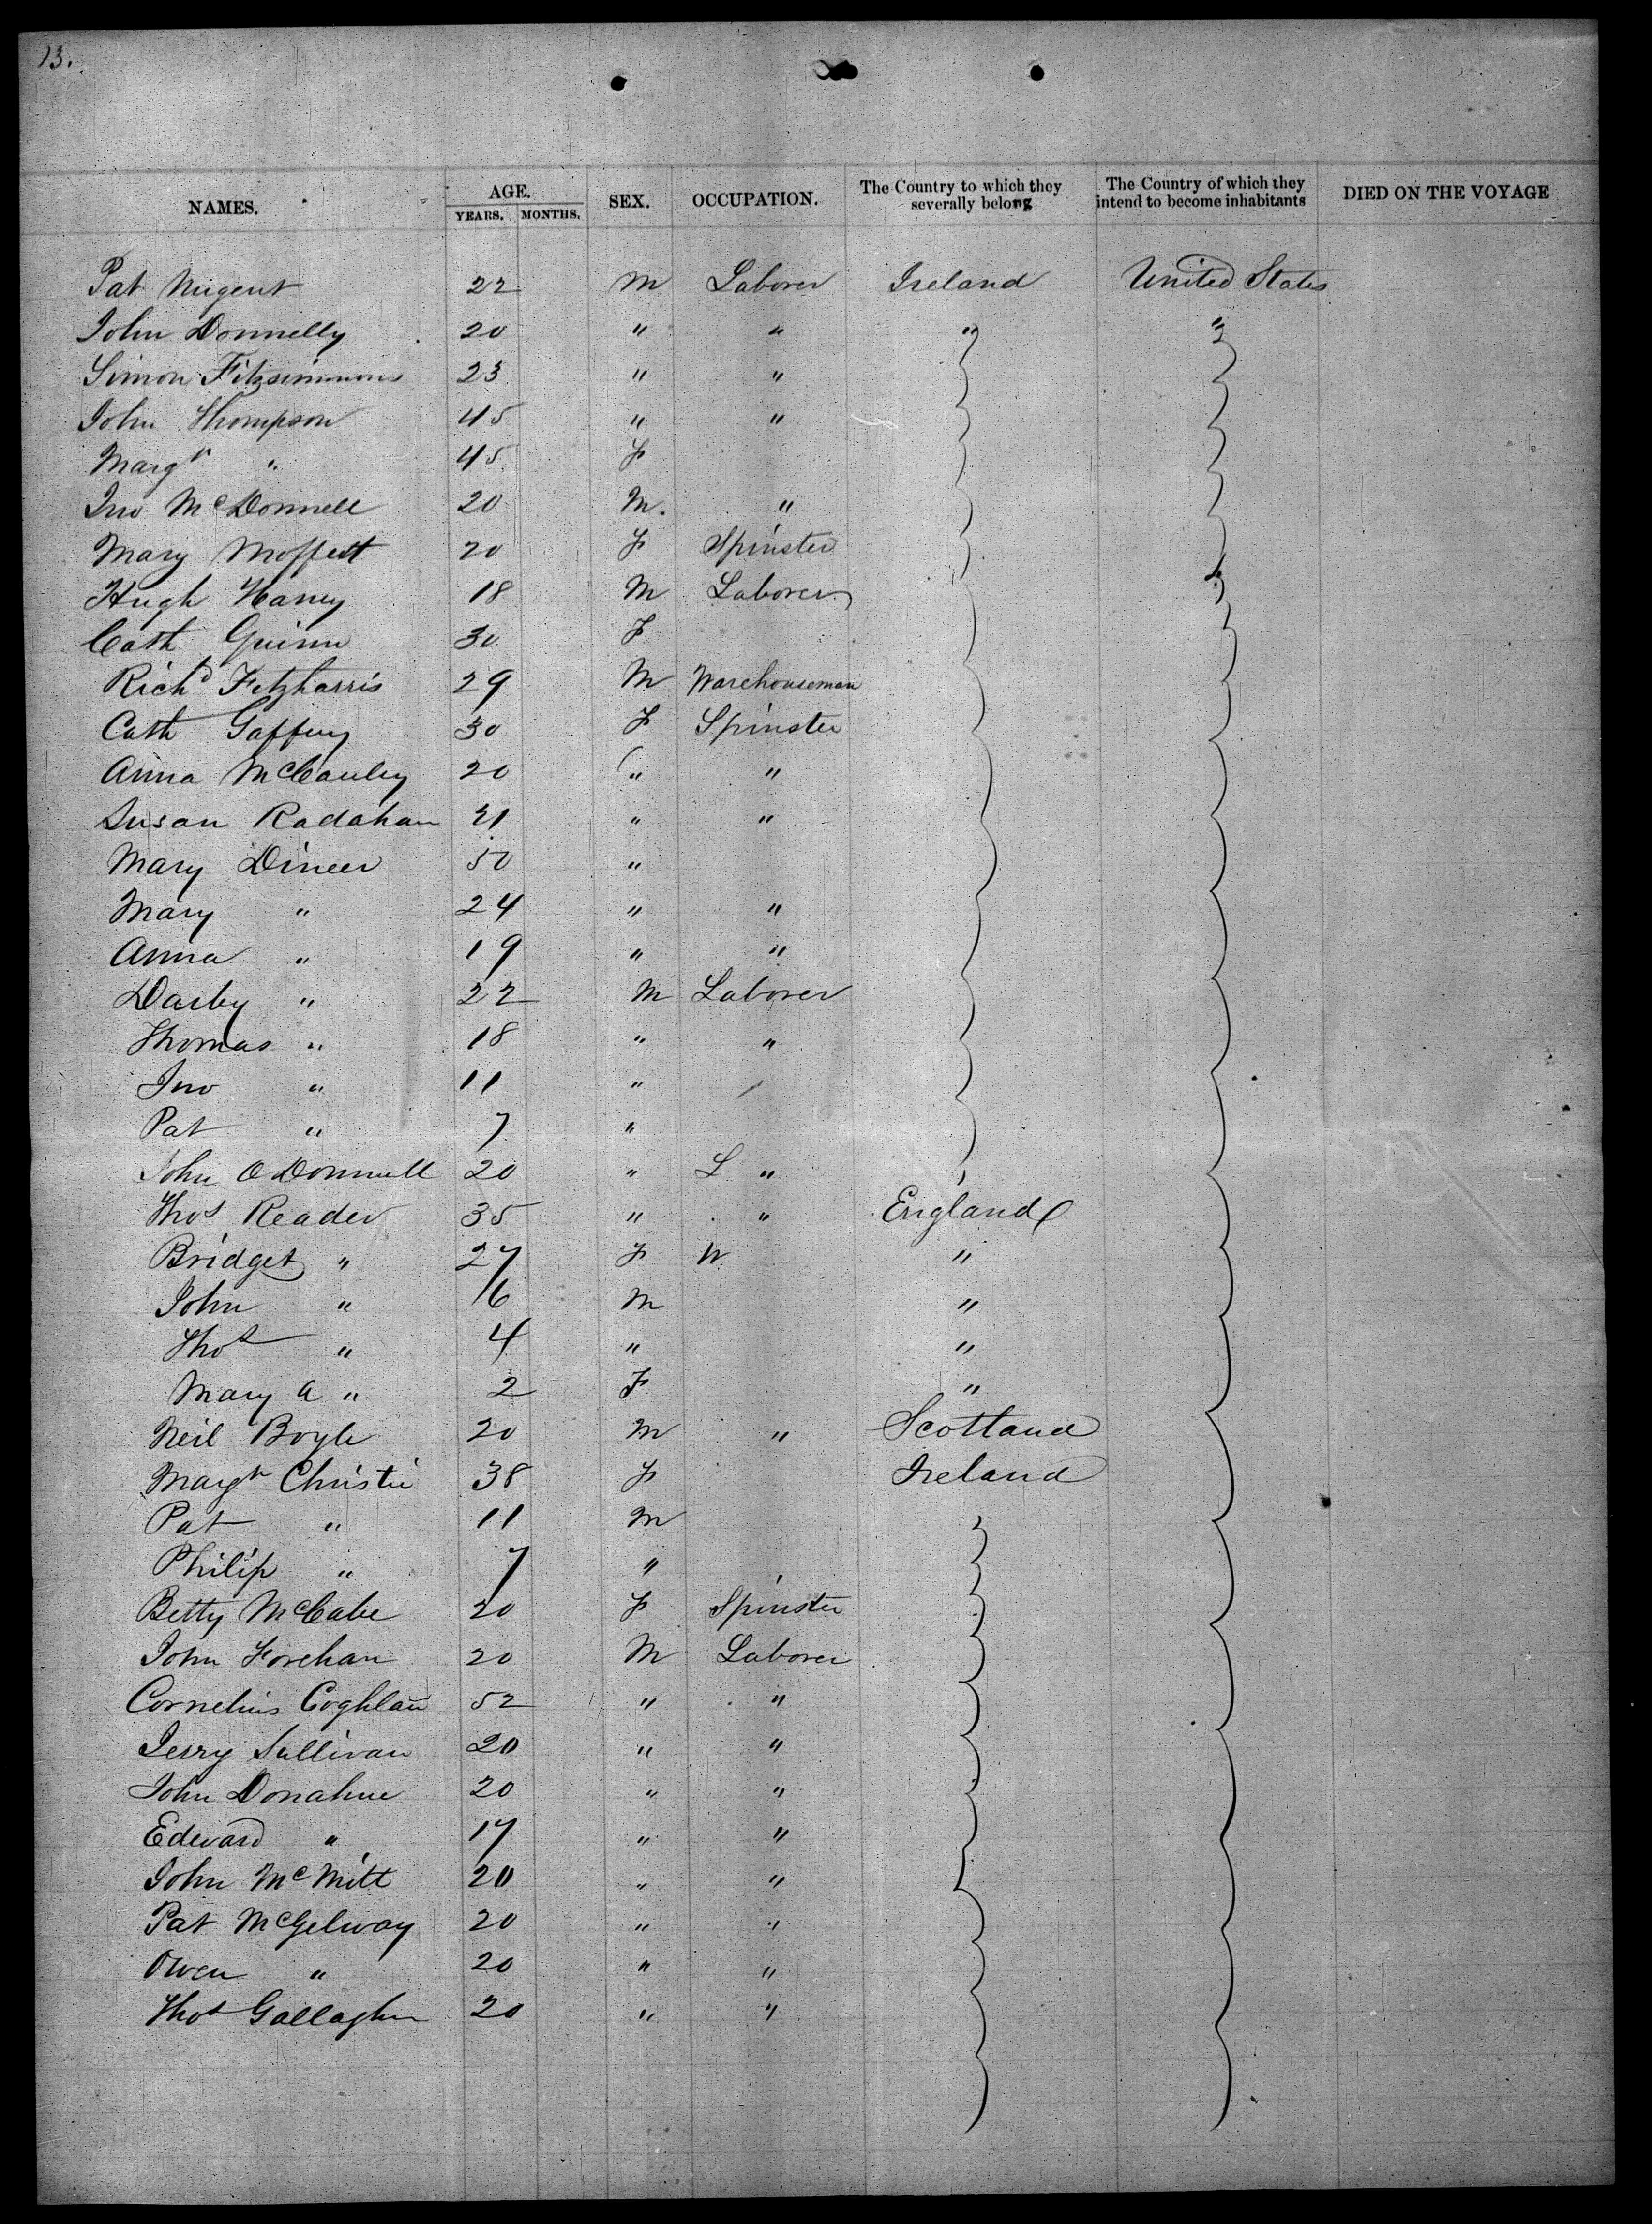 13.
NAMES. AGE. YEARS. MONTHS. SEX. OCCUPATION. The Country to which they severally belong The Country of which they intend to become inhabitants DIED ON THE VOYAGE
Pat Nugent 22 M Laborer Ireland United States
John Donnelly 20 " " " "
Simon Fitzsimmons 23 " "
John Thompson 45 " "
Margt " 45 F
Jno McDonnell 20 M. "
Mary Moffett 20 F Spinster
Hugh Haney 18 M Laborer
Cath Quinn 30 F
Richd Fitzharris 29 M Warehouseman
Cath Gaffney 30 F Spinster
Anna McCauley 20 " "
Susan Radahan 21 " "
Mary Dineer 50 "
Mary " 24 " "
Anna " 19 " "
Darby " 22 M Laborer
Thomas " 18 " "
Jno " 11 "
Pat " 7 "
John O Donnell 20 " L "
Thos Reader 35 " " England
Bridget " 27 F W "
John " 6 M "
Thos " 4 " "
Mary A " 2 F "
Neil Boyle 20 M " Scotland
Margt Christie 38 F Ireland
Pat " 11 M
Philip " 7 "
Betty McCabe 20 F Spinster
John Forehan 20 M Laborer
Cornelius Coghlan 52 " "
Jerry Sullivan 20 " "
John Donahue 20 " "
Edward " 17 " "
John McMitt 20 " "
Pat McGelway 20 " "
Owen " 20 " "
Thos Gallagher 20 " "